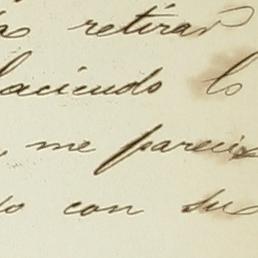 retirar
haciendo lo
, me parecia
con su